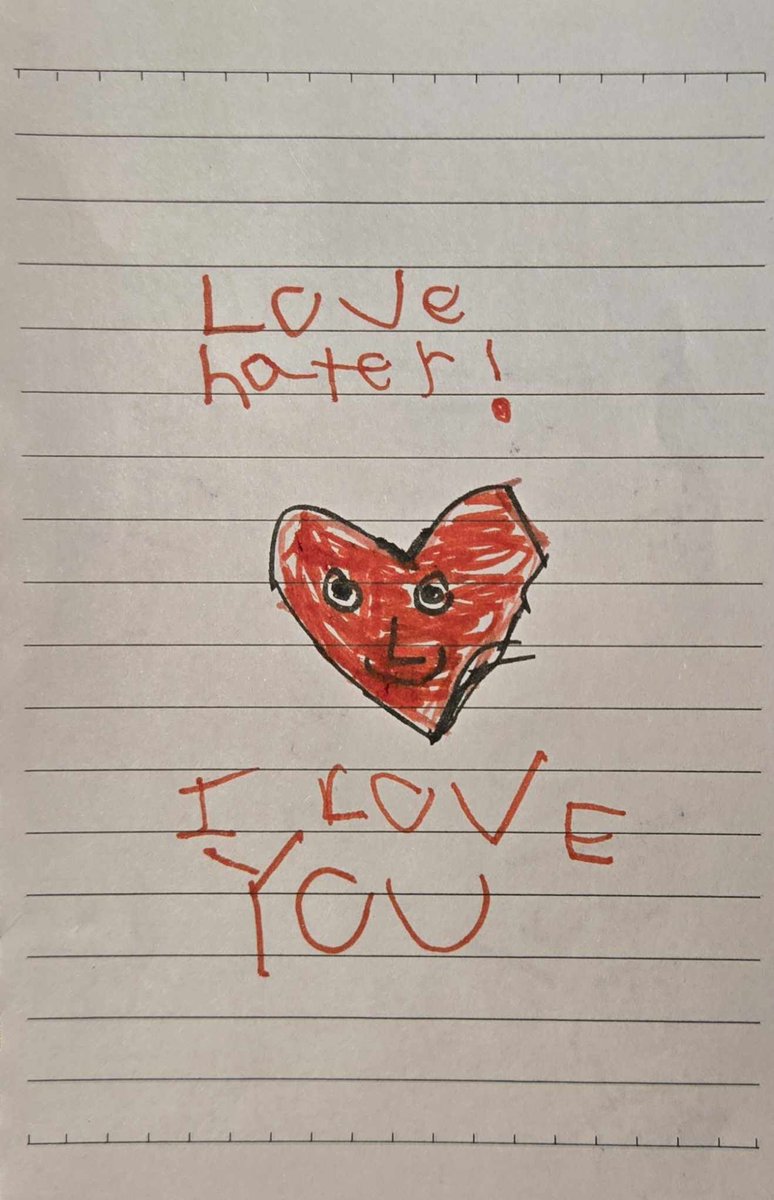 Love
hater!
I LOVE
YOU